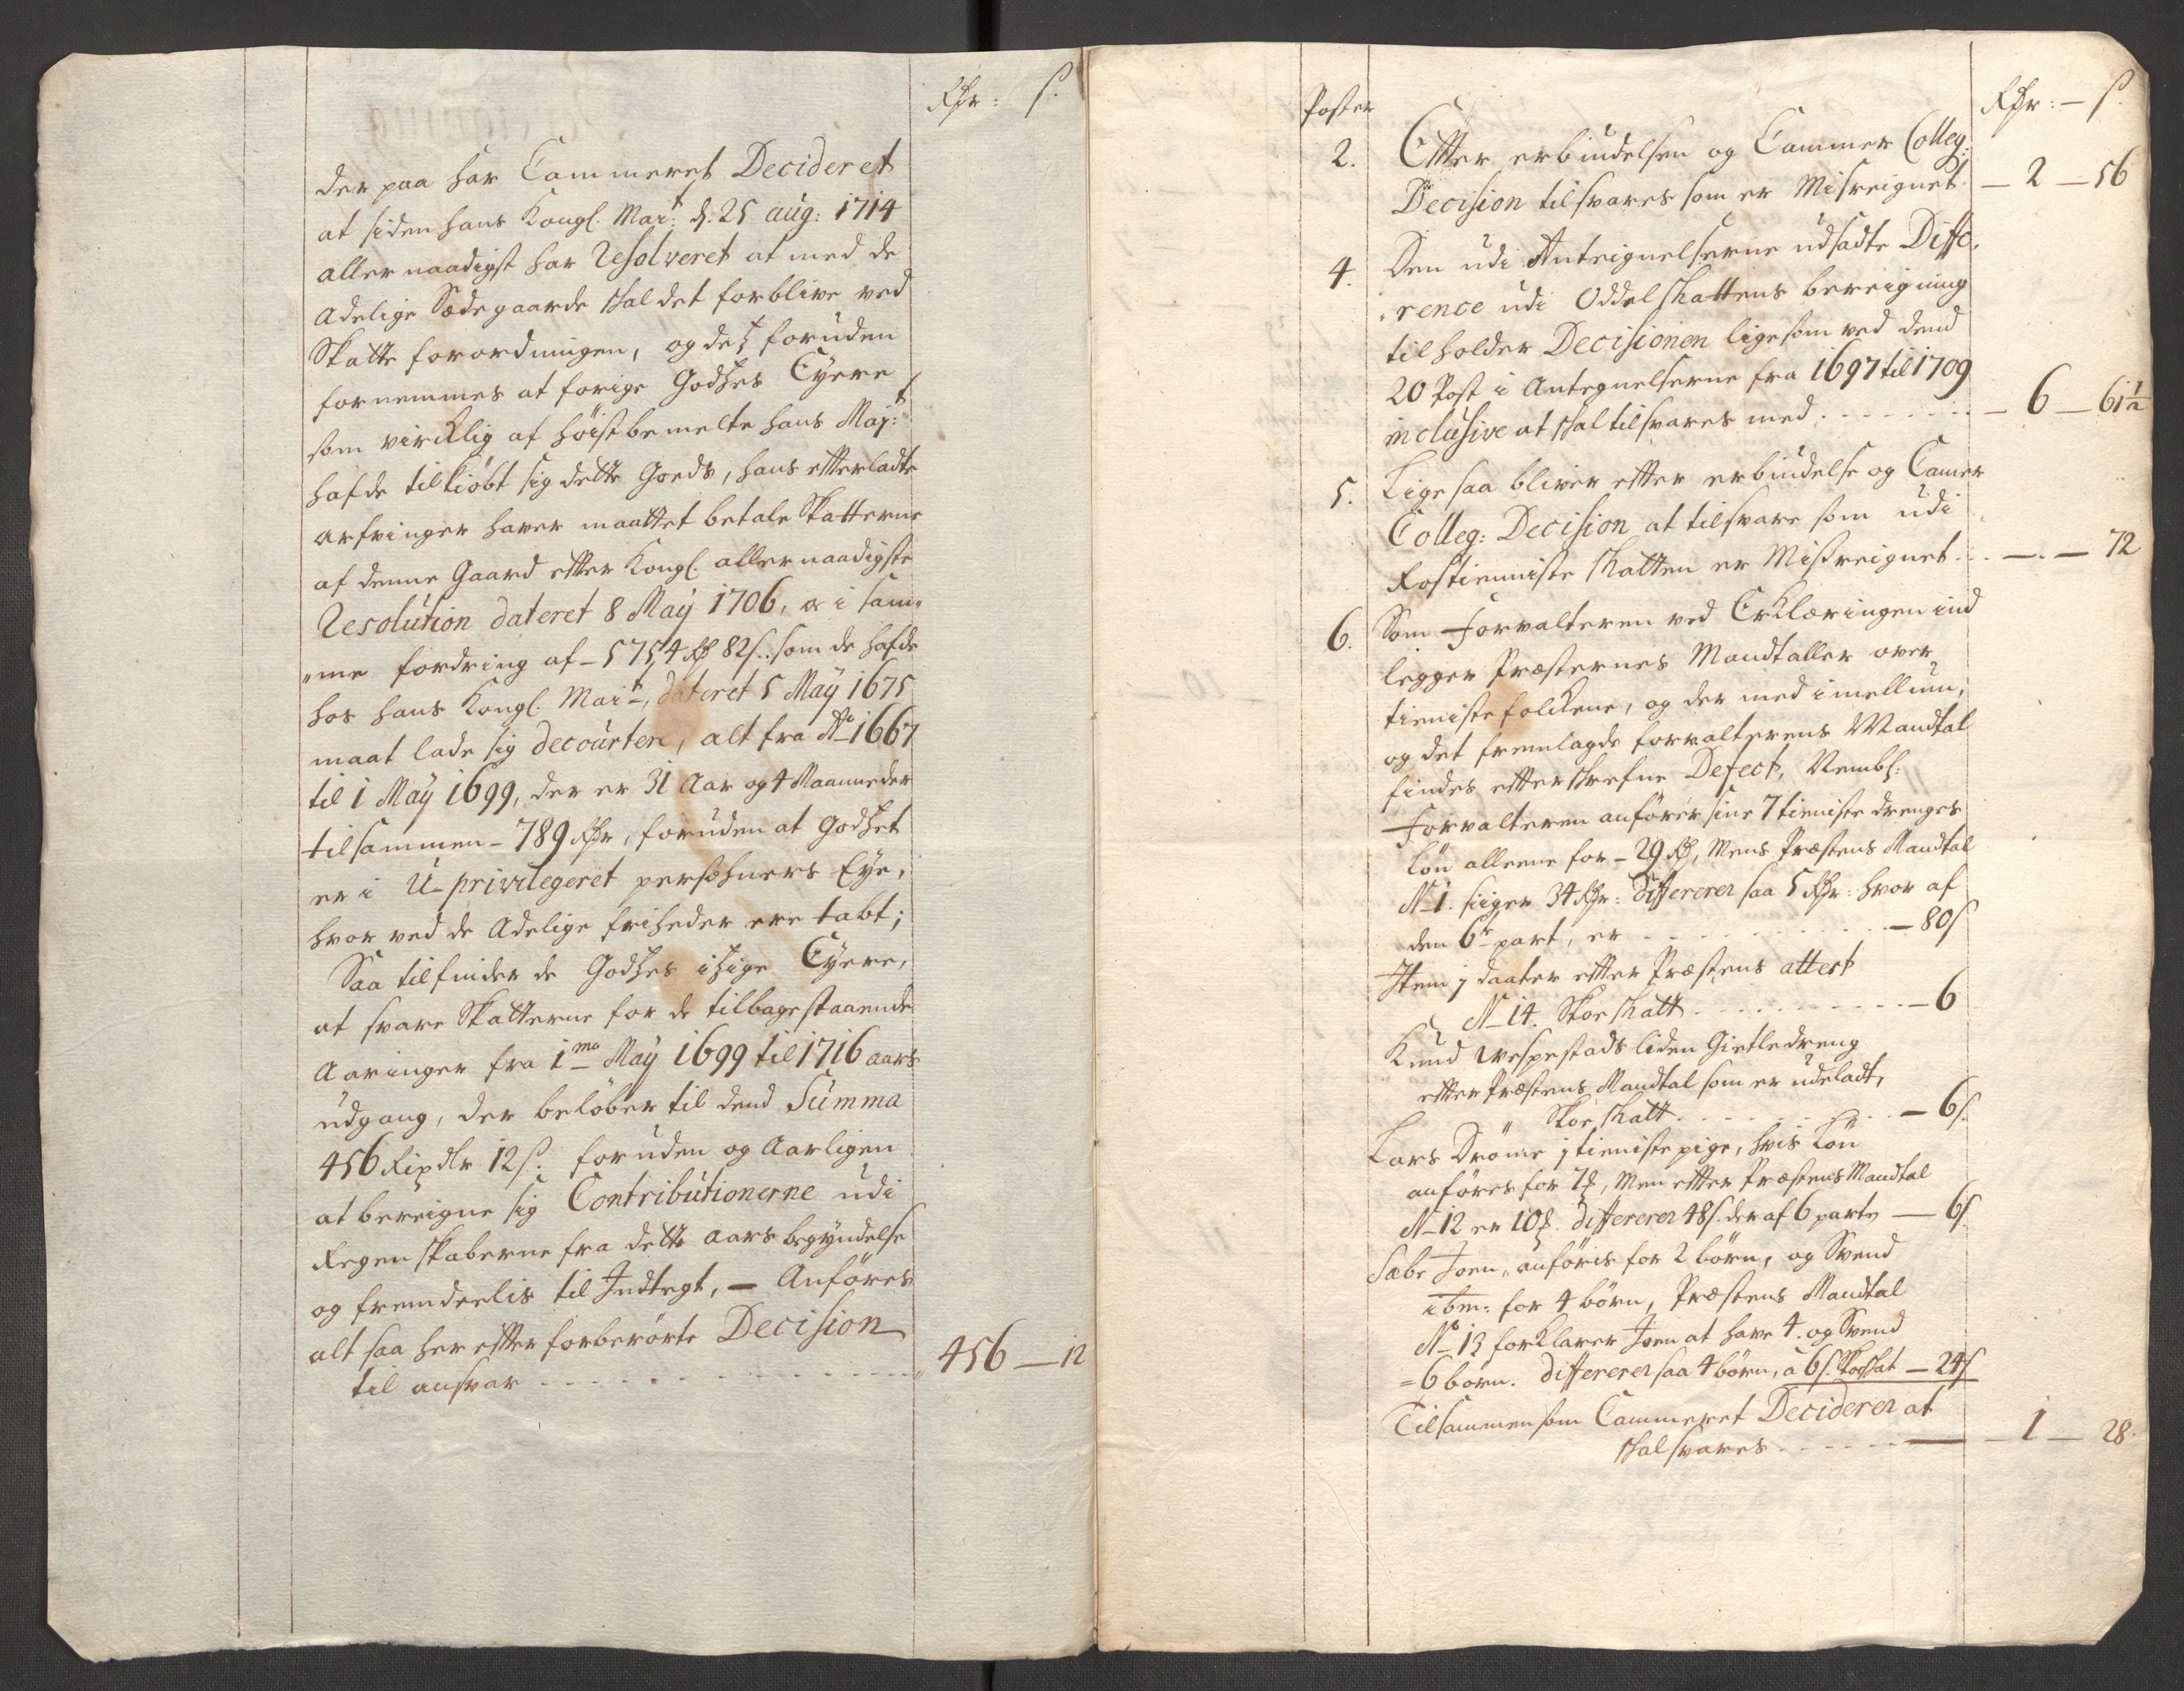 Rdr: s.
der paa har Cammeret Decideret
at siden hans Kongl. Mait: d: 25 aug: 1714
allernaadigst har Resolveret at med de
Adelige Sædegaarde skal det forblive ved
Skatte forordningen, og desz foruden
fornemmes at forige Godses Eyere
som vircklig af höistbemelte hans Maj:t
hafde tilkiöbt sig dette Goeds, hans efterladte
arfvinger haver maattet betale Skatterne
af denne Gaard efter Kongl. allernaadigste
Resolution dateret 8 Maÿ 1706, a i sam„
„me fordring af - 5754 Rd 82s: som de hafde
hos hans Kongl. Mait, dateret 5 Maÿ 1675
maat lade sig decourtere, alt fra Ao 1667
til 1 Maÿ 1699, der er 31 Aar og 4 Maaneder
tilsammen - 789 Rdr, foruden at Godset
er i U-privilegeret persohners Eye,
hvor ved de Adelige friheder ere tabt;
Saa tilfinder de Godses itzige Eyere,
at svare Skatterne for de tilbagestaaende
Aaringer fra 1mo Maÿ 1699 til 1716 aars
udgang, der belöber til dend Summa
456 Rixdlr 12 s: foruden og Aarligen
at bereigne sig Contributionerne udi
Regenskaberne fra dette aars begyndelse
og fremdeelis til Indtegt, - Anföres
alt saa her efter forberörte Decision
til ansvar - - - 456 - 12
Poster Rdr: - s.
2. Efter erbindelsen og Cammer Colleg:
Decision tilsvares som er Misreignet. - 2 - 56
4. Den udi Antreignelserne udsadte Diffe,
,rence udi Oddelskattens bereigning
tilholder Decisionen ligesom ved dend
20 Post i Antegnelserne fra 1697 til 1709
inclusive at skal tilsvares med - - - 6 - 61½
5. Lige saa bliver efter erbindelse og Camer
Colleg: Decision at tilsvare som udi
Rostienniste skatten er Misreignet - - - 72
6. Som Forvalteren ved Erklæringen ind
legger Præsternes Mandtaller over
tieniste folckene, og der med imellum,
og det fremlagde forvalterens Mandtal
findes efterskrefne Defect, Nembl:
Forvalteren anförer sine 7 tieniste drenges
lön alleene for - 29 Rd, Mens Præstens Mandtal
No 1. siiger 34 Rdr: differerer saa 5 Rdr: hvor af
den 6te part, er - - - 80 s
Item 1 daater efter Præstens attest
No 14. Skoe skatt - - - 6
Knud Vespestads liden Gietledreng
efter Præstens Mandtal som er udeladt,
Skoe skatt - - - 6 s.
Lars Dröme 1 tieniste pige, hvis Lön
anföres for 7, Men efter Præstens Mandtal
No 12 er 10. differerer 48 s. der af 6 parte - 6 s.
Sæbe Joen, anföris for 2 börn, og Svend
ibm: for 4 börn, Præstens Mandtal
No 13 forklarer Joen at have 4. og Svend
= 6 börn. differerer saa 4 börn, à 6 s. Skoeskat - 24 s
Tilsammen som Cammeret Deciderer at
skal svares - - - 1 - 28.